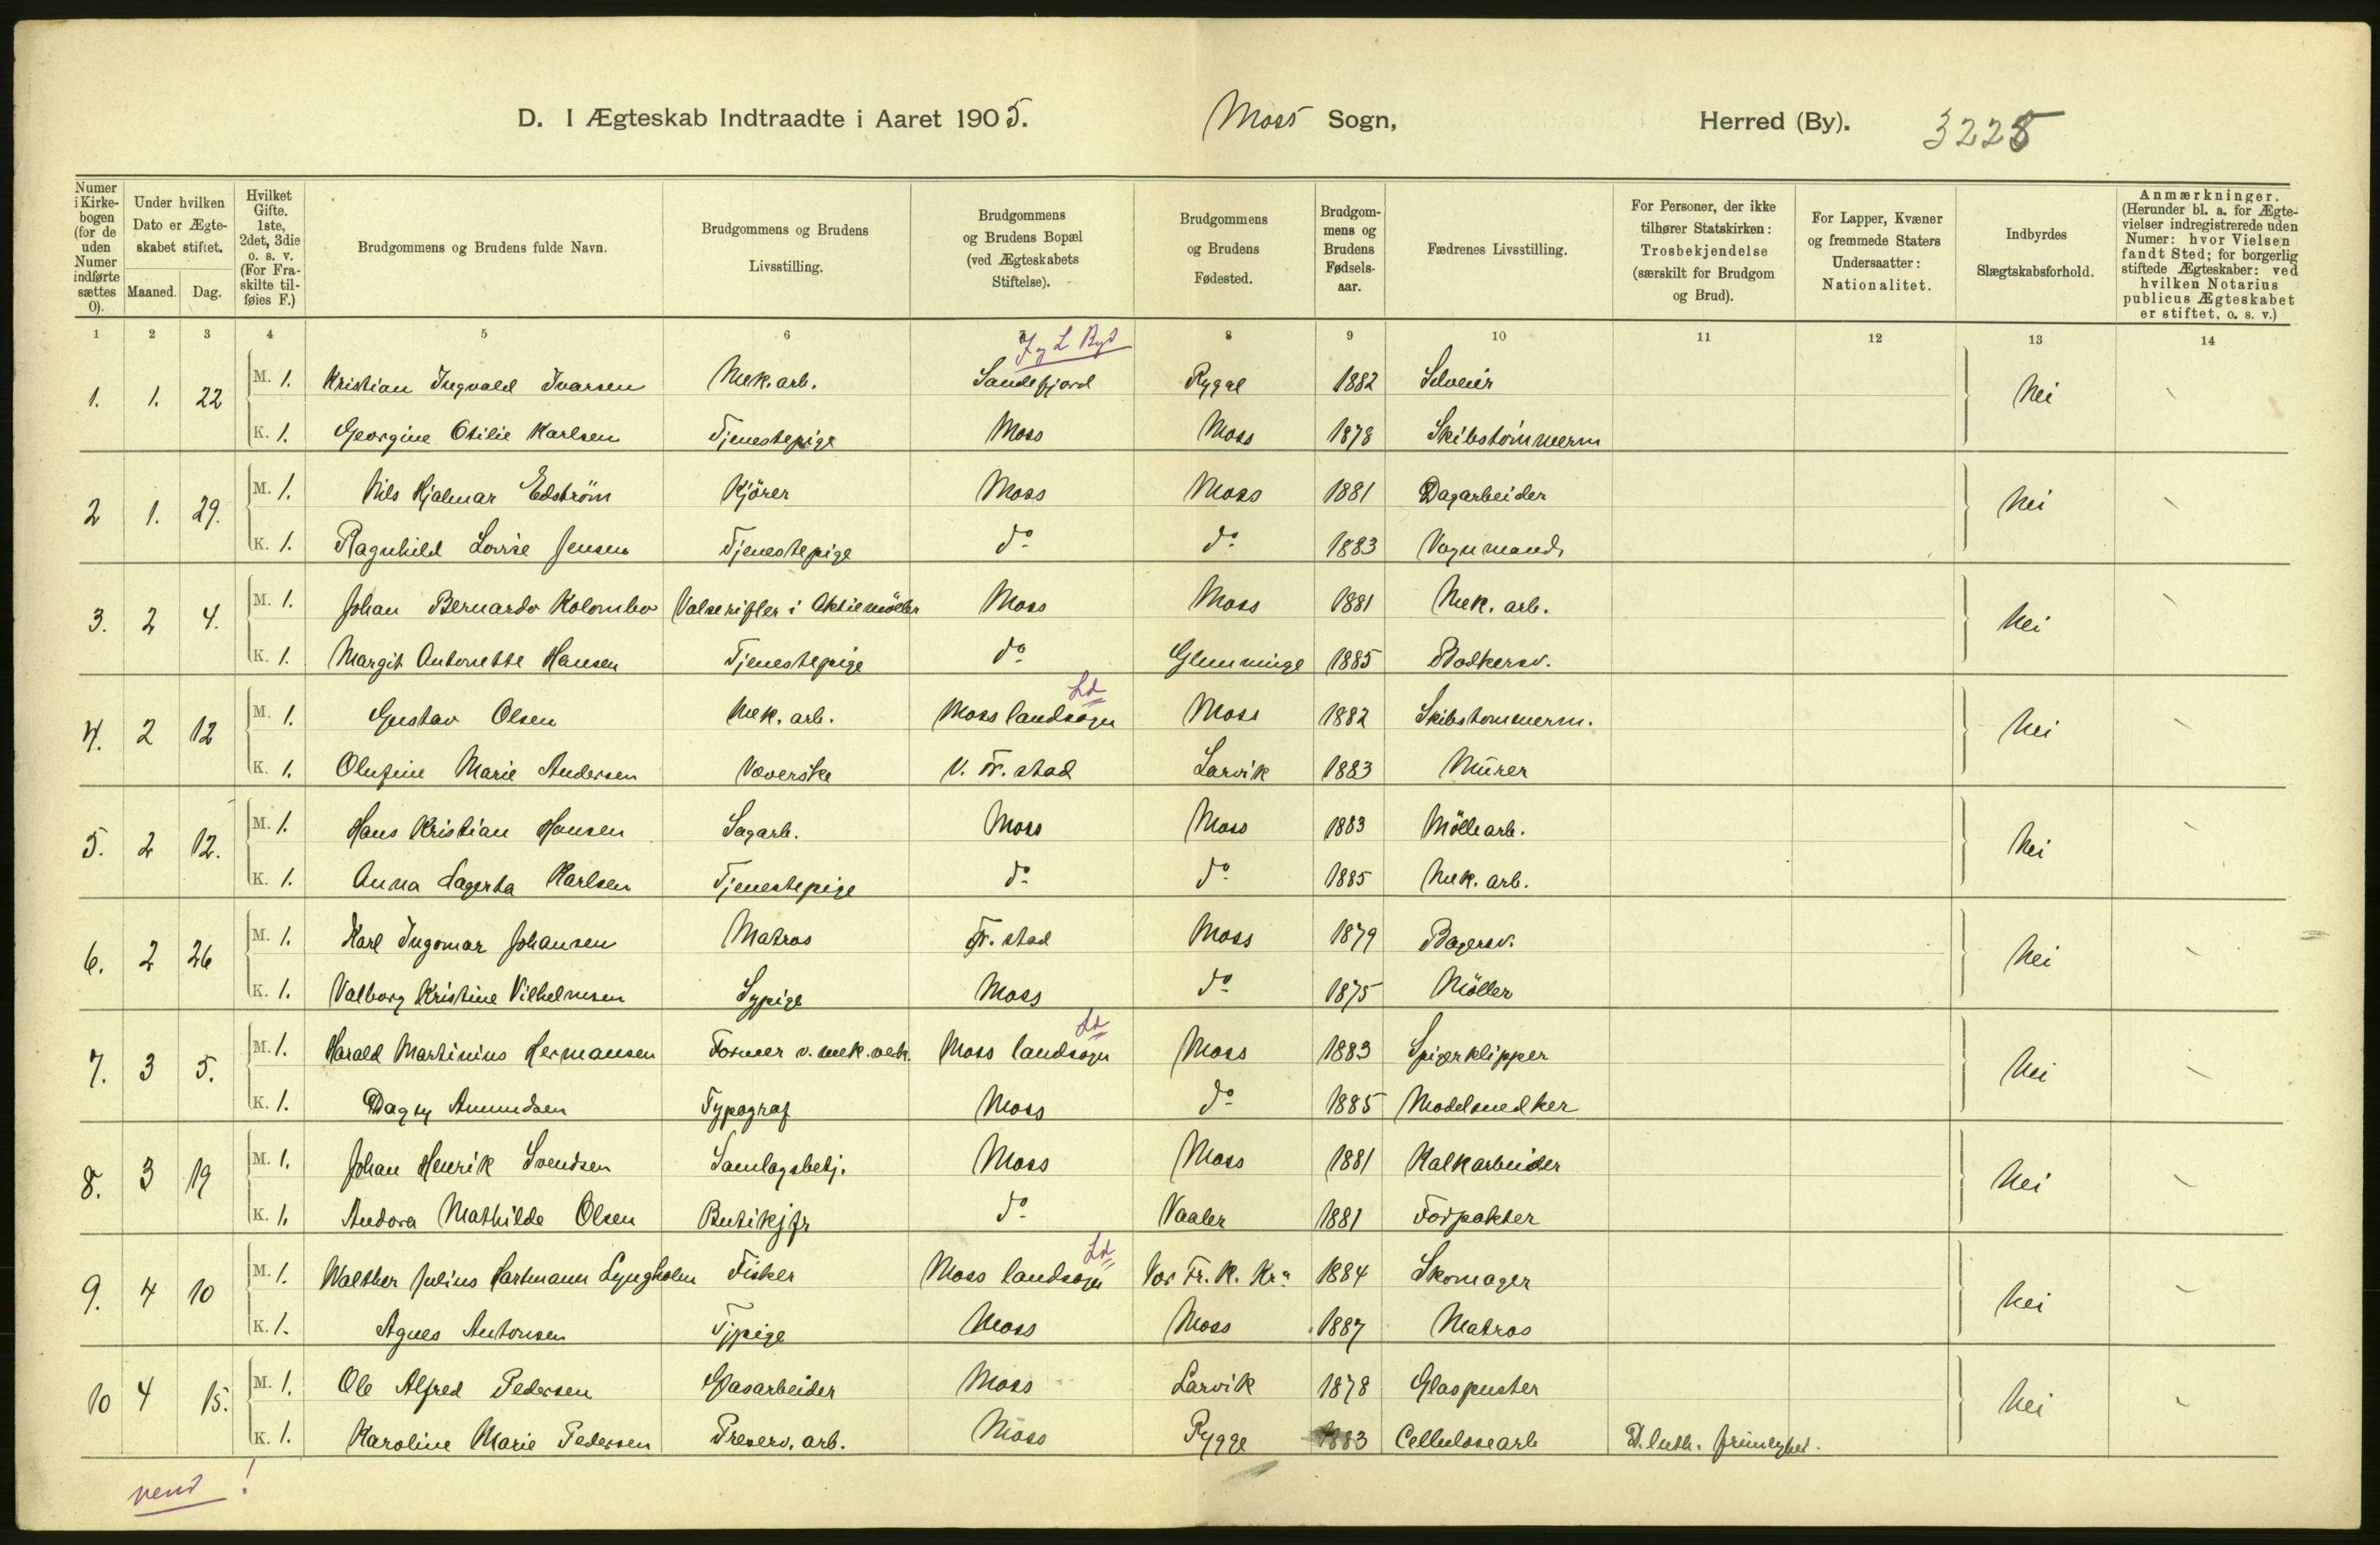 D. I Ægteskab Indtraadte i Aaret 1905. Moss Sogn, Herred (By). 3225
Numer i Kirke-bogen (for de uden Numer indførte sættes 0).
Under hvilken Dato er Ægte-skabet stiftet.
Maaned. Dag.
Hvilket Gifte. 1ste, 2det, 3die o. s. v. (For Fra-skilte til-føies F.)
Brudgommens og Brudens fulde Navn.
Brudgommens og Brudens Livsstilling.
Brudgommens og Brudens Bopæl (ved Ægteskabets Stiftelse).
Brudgommens og Brudens Fødested.
Brudgom-mens og Brudens Fødsels-aar.
Fædrenes Livsstilling.
For Personer, der ikke tilhører Statskirken: Trosbekjendelse (særskilt for Brudgom og Brud).
For Lapper, Kvæner og fremmede Staters Undersaatter: Nationalitet.
Indbyrdes Slægtskabsforhold.
Anmærkninger. (Herunder bl. a. for Ægte-vielser indregistrerede uden Numer: hvor Vielsen fandt Sted; for borgerlig stiftede Ægteskaber: ved hvilken Notarius publicus Ægteskabet er stiftet, o. s. v.)
1 2 3 4 5 6 7 8 9 10 11 12 13 14
1. 1. 22 M. 1. Kristian Ingvald Ivarsen Mek. arb. Sandefjord Rygge 1882 Nei
K. 1. Georgine Otilie Karlsen Tjenestepige Moss Moss 1878 Skibstømmerm
2 1. 29. M. 1. Nils Hjalmar Edström Kjörer Moss Moss 1881 Dagarbeider Nei
K. 1. Ragnhild Lovise Jensen Tjenestepige do do 1883 Vognmand
3. 2 4. M. 1. Johan Bernardo Kolombo Valserifler i Aktiemöller Moss Moss 1881 Mek. arb. Nei
K. 1. Margit Antonette Hansen Tjenestepige do Glemminge 1885 Bødkersv.
Ld
4. 2 12 M. 1. Gustav Olsen Mek. arb. Moss landsogn Moss 1882 Skibstømmerm. Nei
K. 1. Olufine Marie Andersen Væverske V. Fr. stad Larvik 1883 Murer
5. 2 12. M. 1. Hans Kristian Hansen Sagarb. Moss Moss 1883 Möllearb. Nei
K. 1. Anna Lagerta Karlsen Tjenestepige do do 1885 Mek. arb.
6. 2 26 M. 1. Karl Ingomar Johansen Matros Fr. stad Moss 1879 Bagersv. Nei
K. 1. Valborg Kristine Vilhelmsen Sypige Moss do 1875 Möller
Ld
7. 3 5. M. 1. Harald Martinius Hermansen Former v. mek. verk. Moss landsogn Moss 1883 Spigerklipper Nei
K. 1. Dagny Amundsen Typograf Moss do 1885 Modelsnedker
8. 3 19 M. 1. Johan Henrik Svendsen Samlagsbetj. Moss Moss 1881 Kalkarbeider Nei
K. 1. Andora Mathilde Olsen Butikjfr do Vaaler 1881 Forpakter
Ld
9. 4 10 M. 1. Walther Julius Hartmann Lyngholm Fisker Moss landsogn Vor Fr. K. Kra 1884 Skomager Nei
K. 1. Agnes Antonsen Tjpige Moss Moss 1887 Matros
10 4 15. M. 1. Ole Alfred Pedersen Glasarbeider Moss Larvik 1878 Glaspuster Nei
K. 1. Karoline Marie Pedersen Preserv. arb. Moss Rygge 1883 Cellulosearb D. luth. frimenighed.
vend!